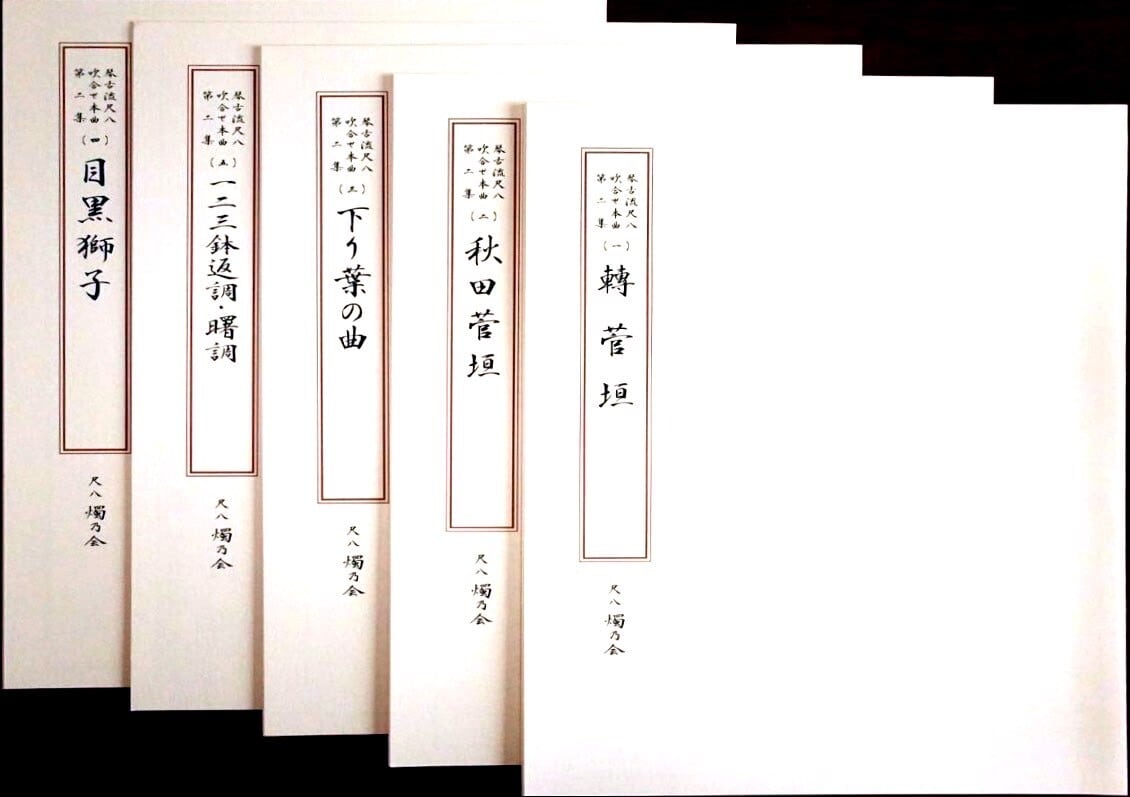 琴古流尺八
吹合せ本曲
第二集
(一)
轉菅垣
尺八 燭乃会
琴古流尺八
吹合せ本曲
第二集
(二)
秋田菅垣
尺八 燭乃会
琴古流尺八
吹合せ本曲
第二集
(三)
下り葉の曲
尺八 燭乃会
琴古流尺八
吹合せ本曲
第二集
(五)
一二三鉢返調・曙調
尺八 燭乃会
琴古流尺八
吹合せ本曲
第二集
(四)
目黒獅子
尺八 燭乃会